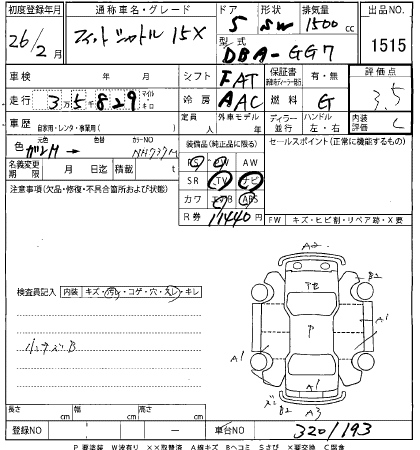 初度登録年月 通称車名・グレード ドア 形状 排気量 出品NO.
26/2月 フィットシャトル 15X 5 SW 1500cc 1515
型式 DBA-GG7
車検 年 月 シフト FAT 保証書 有・無 評価点
走行 3万5千829 マイル km 冷房 AAC 燃料 G 3.5
車歴 自家用・レンタ・事業用( ) 定員 人 外車モデル 年 ディーラー 並行 ハンドル 左・右 内装評価 C
色 元色 ガンM → 色替 カラーNO NH737M 装備品(純正品に限る) セールスポイント(正常に機能するもの)
PS PW AW
名義変更期限 月 日迄 積載 t SR TV ナビ
注意事項(欠品・修復・不具合箇所および状態) カワ エアB ABS
R券 11440円 FW キズ・ヒビ割・リペア跡・X要
検査員記入 内装 キズ・汚れ・コゲ・穴・スレ・キレ
A2
B2
A1
A1
A1
B2 A3
長さ cm 幅 cm 高さ cm
登録NO — 車台NO 320/193
P要塗装 W波有り ××取替済 A線キズ Bヘコミ Sさび ×要交換 C腐食